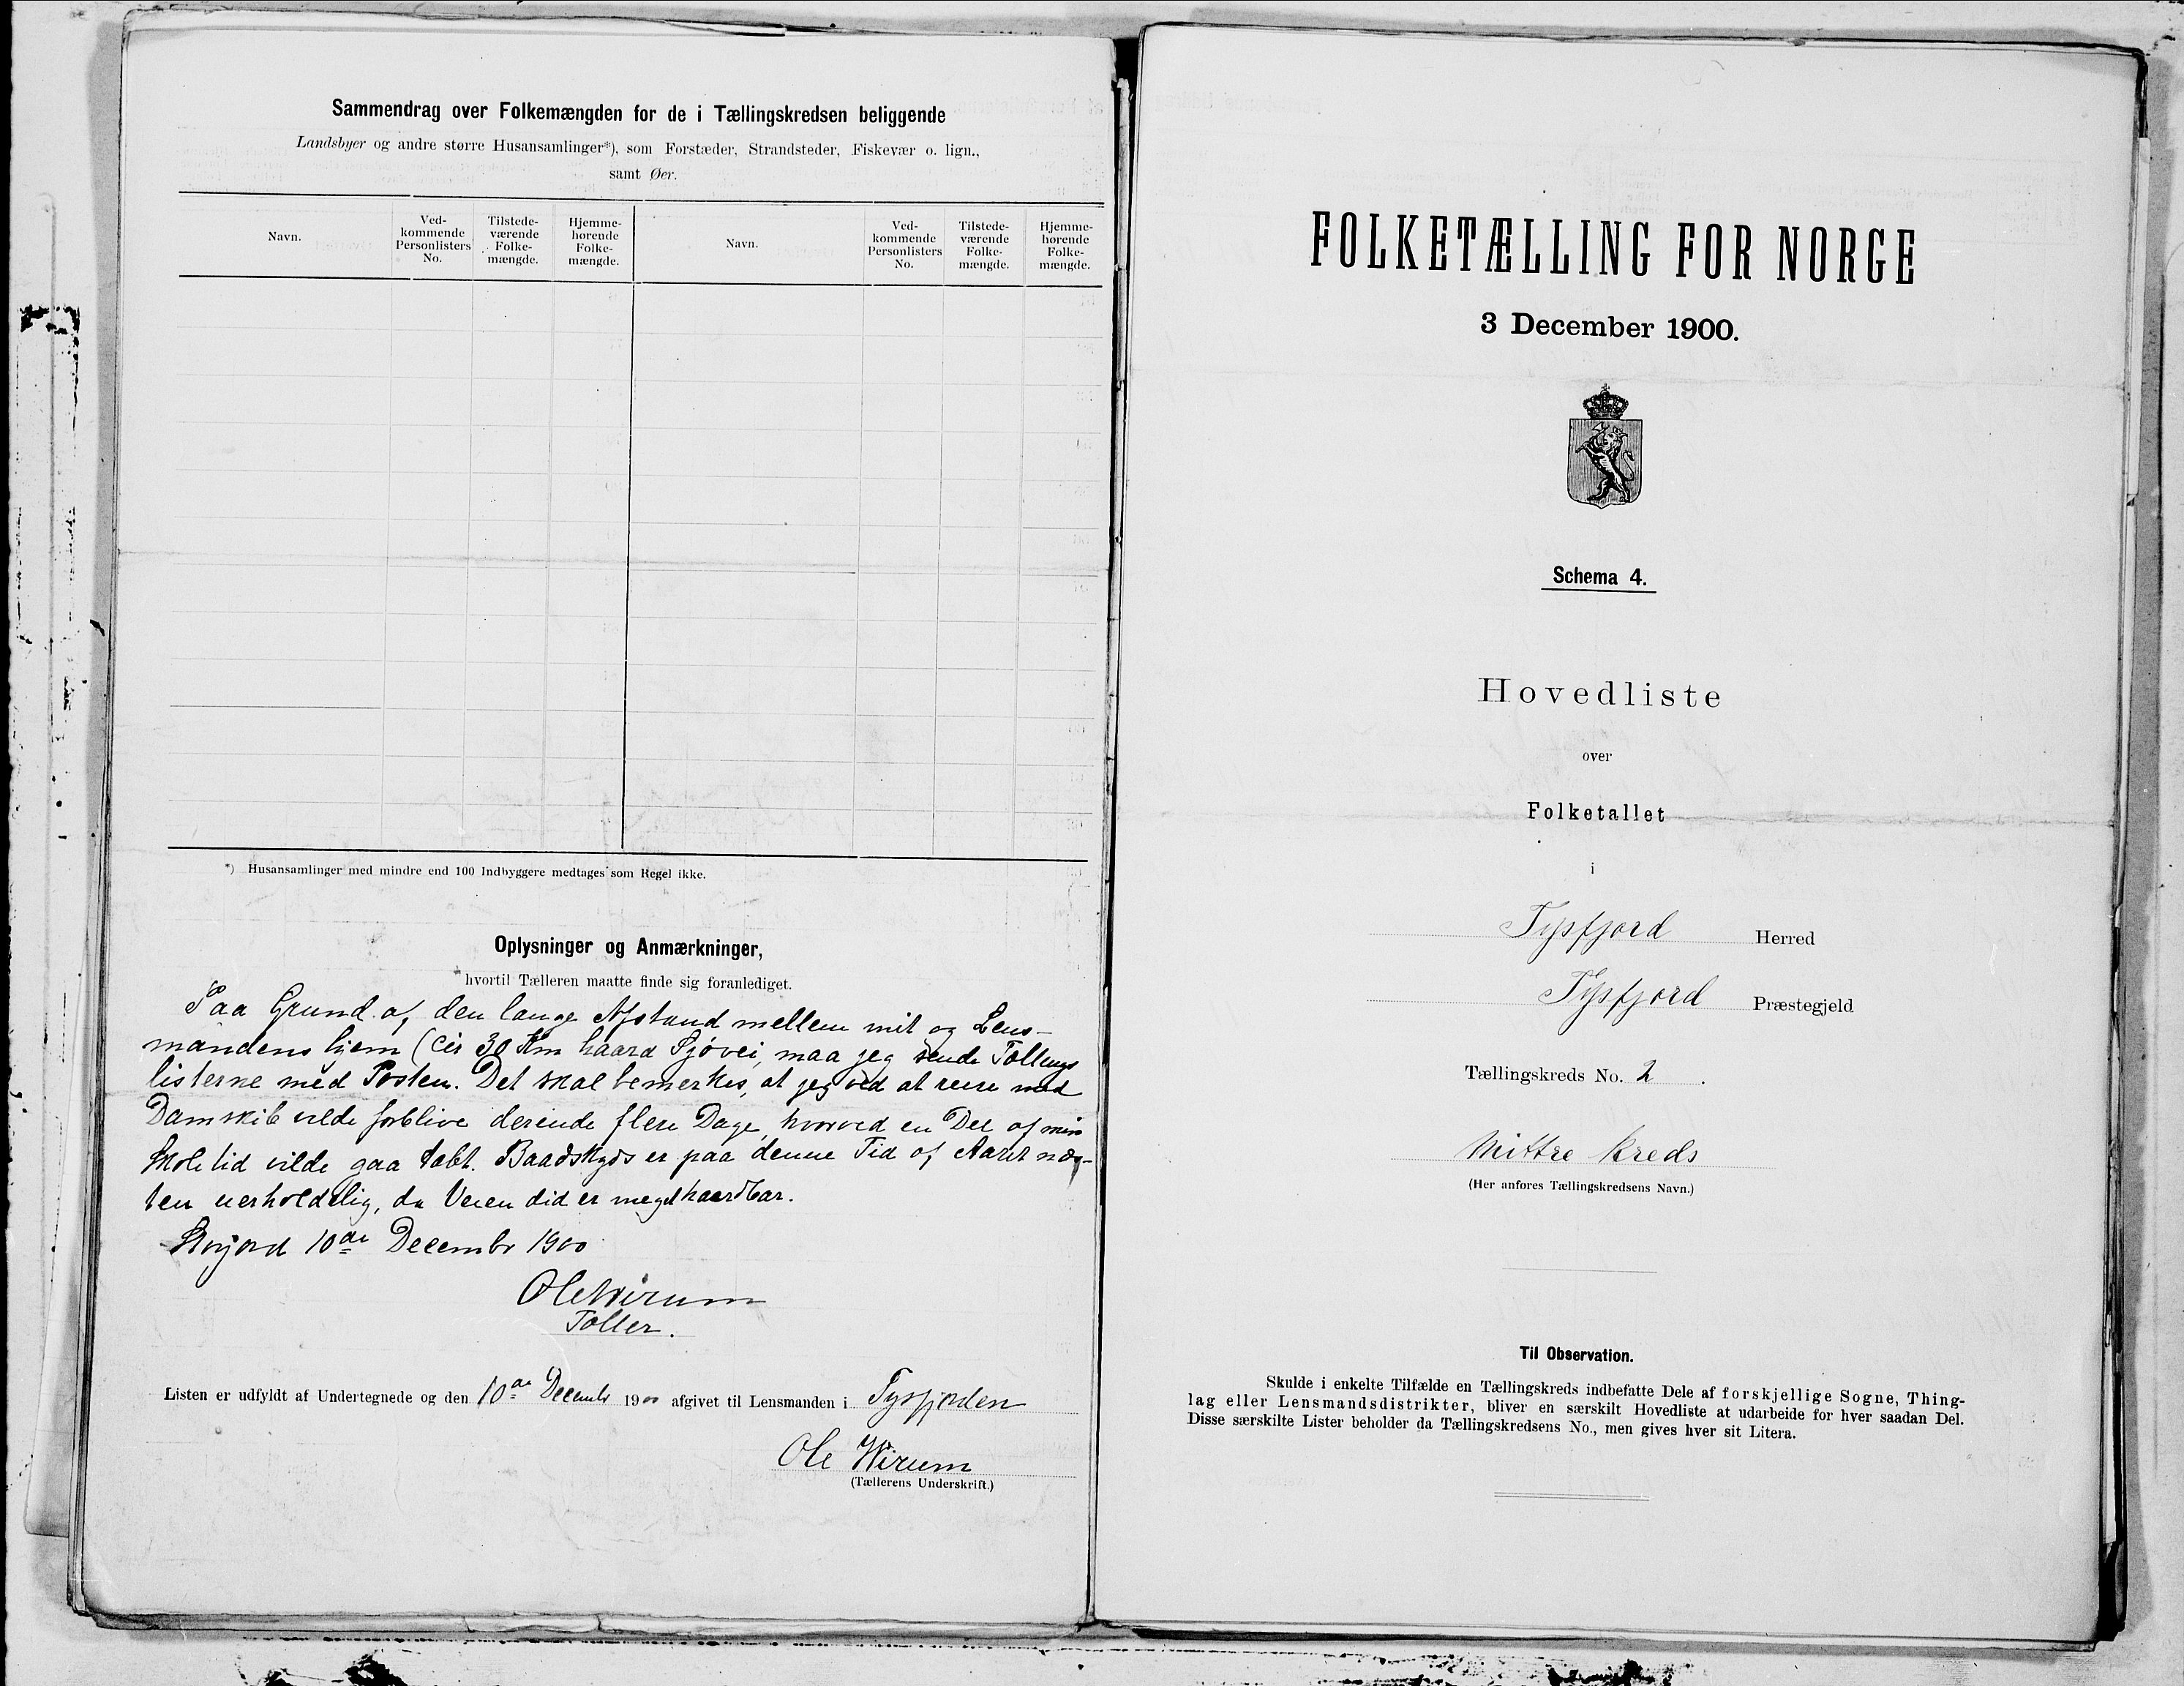 Sammendrag over Folkemængden for de i Tællingskredsen beliggende
Landsbyer og andre større Husansamlinger*), som Forstæder, Strandsteder, Fiskevær o. lign.,
samt Øer.
Navn.
Ved-
kommende
Personlisters
No.
Tilstede-
værende
Folke-
mængde.
Hjemme-
hørende
Folke-
mængde.
Navn.
Ved-
kommende
Personlisters
No.
Tilstede-
værende
Folke-
mængde.
Hjemme-
hørende
Folke-
mængde.
*) Husansamlinger med mindre end 100 Indbyggere medtages som Regel ikke.
Oplysninger og Anmærkninger,
hvortil Tælleren maatte finde sig foranlediget.
Paa Grund af den lange Afstand mellem mit og Lens-
mandens hjem (cir 30 Km haard Sjøvei, maa jeg sende Tællings
listerne med Posten. Det skal bemerkes, at jeg ved at reise med
Damskib vilde forblive derinde flere Dage, hvorved en Del af min
Skoletid vilde gaa tabt. Baadskyds er paa denne Tid af Aaret næs-
ten uerholdelig, da Veien did er meget haardbar.
10de Decembr 1900
Ole Wirum
Tæller.
Listen er udfyldt af Undertegnede og den 10de Decembr 1900 afgivet til Lensmanden i Tysfjorden
Ole Wirum
(Tællerens Underskrift.)
FOLKETÆLLING FOR NORGE
3 December 1900.
Schema 4.
Hovedliste
over
Folketallet
i
Tysfjord Herred
Tysfjord Præstegjeld
Tællingskreds No. 2.
Mittre Kreds
(Her anføres Tællingskredsens Navn.)
Til Observation.
Skulde i enkelte Tilfælde en Tællingskreds indbefatte Dele af forskjellige Sogne, Thing-
lag eller Lensmandsdistrikter, bliver en særskilt Hovedliste at udarbeide for hver saadan Del.
Disse særskilte Lister beholder da Tællingskredsens No., men gives hver sit Litera.